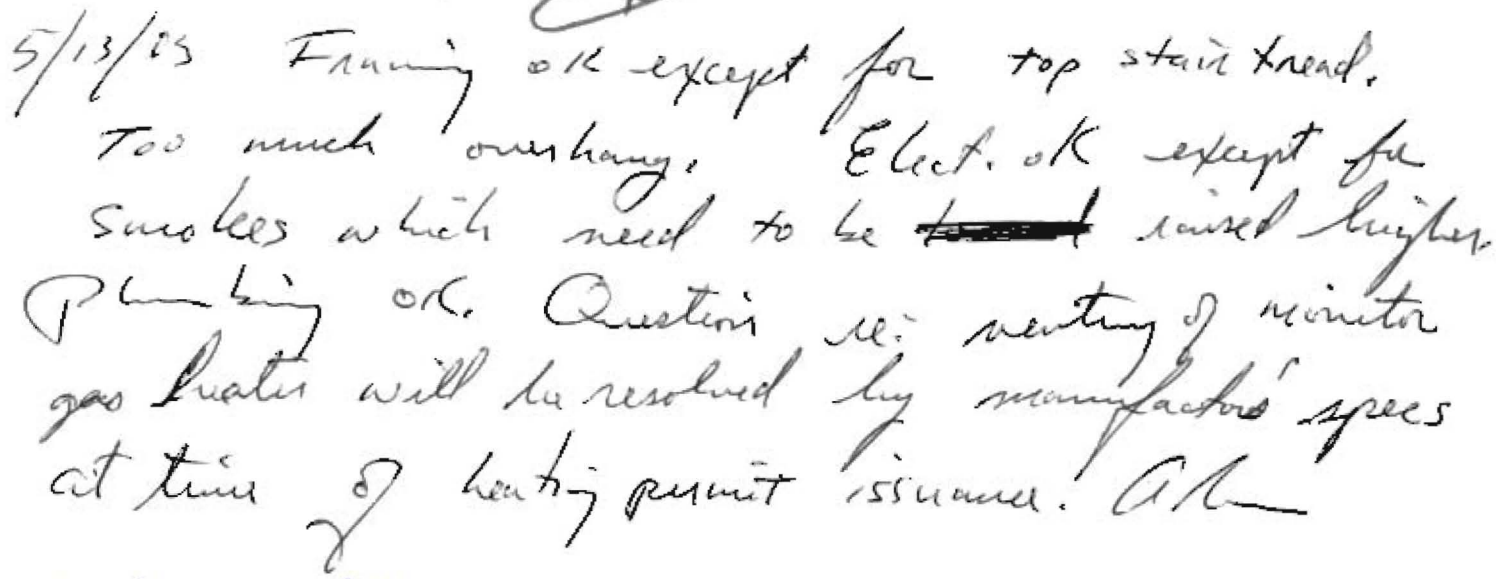 5/13/05 Framing OK except for top stair tread.
Too much overhang. Elect. OK except for
smokes which need to be raised higher.
Plumbing OK. Question re: venting of monitor
gas heater will be resolved by manufactors' specs
at time of heating permit issuance.